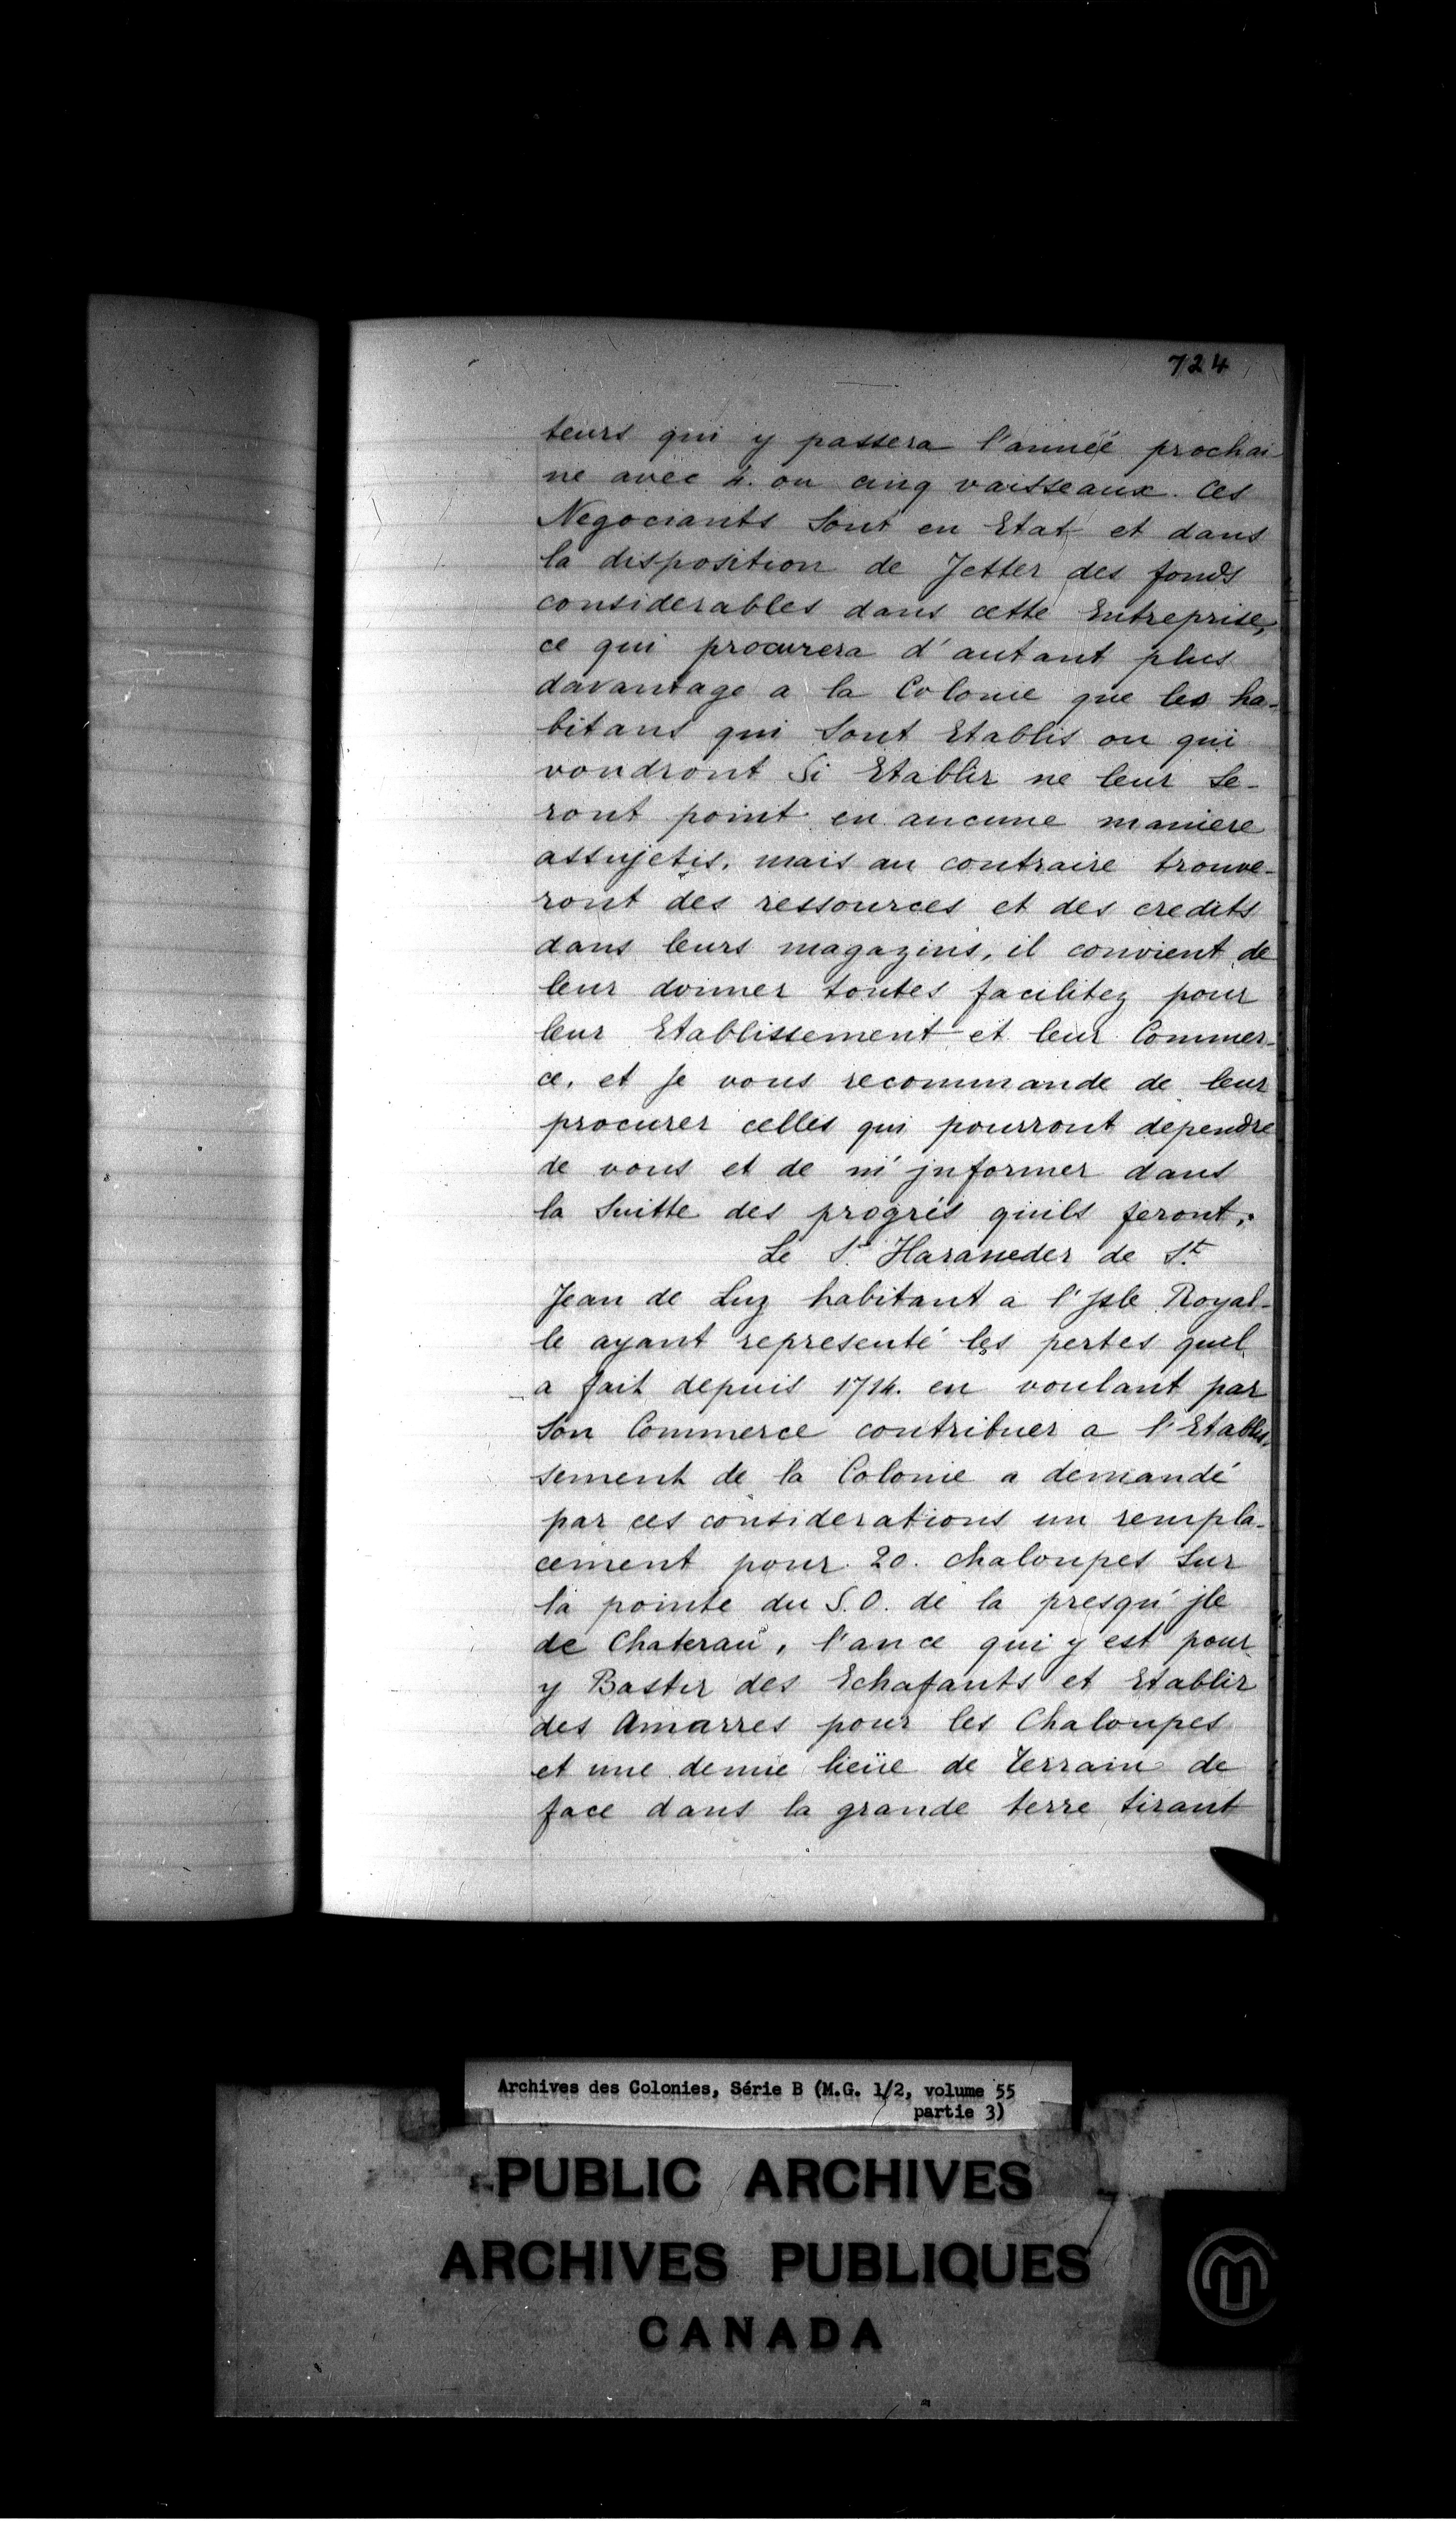 724
teurs qui y passera l'année prochai
ne avec 4. ou cinq vaisseaux. Ces
Negociants Sont en Etat et dans
la disposition de Jetter des fonds
considerables dans cette Entreprise,
ce qui procurera d'autant plus
davantage a la Colonie que les ha-
bitans qui Sont Etablis ou qui
voudront Si Etablir ne leur Se-
ront point en aucune maniere
assujetis, mais au contraire trouve-
ront des ressources et des credits
dans leurs magazins, il convient de
leur donner toutes facilitez pour
leur Etablissement et leur Commer-
ce, et Je vous recommande de leur
procurer celles qui pourront dependre
de vous et de m'jnformer dans
la Suitte des progrés quils feront.
Le Sr. Haraneder de St.
Jean de Luz habitant a l'Jsle Royal-
le ayant representé les pertes quel
a fait depuis 1714. en voulant par
Son Commerce contribuer a l'Etablis-
sement de la Colonie a demandé
par ces considerations un rempla-
cement pour 20. chaloupes Sur
la pointe du S.O. de la presqu'jle
de Chaterau, l'ance qui y est pour
y Bastir des Echafants et Etablir
des Amarres pour les Chaloupes
et une demie lieüe de Terrain de
face dans la grande terre tirant
Archives des Colonies, Série B (M.G. 1/2, volume 55
partie 3)
PUBLIC ARCHIVES
ARCHIVES PUBLIQUES
CANADA